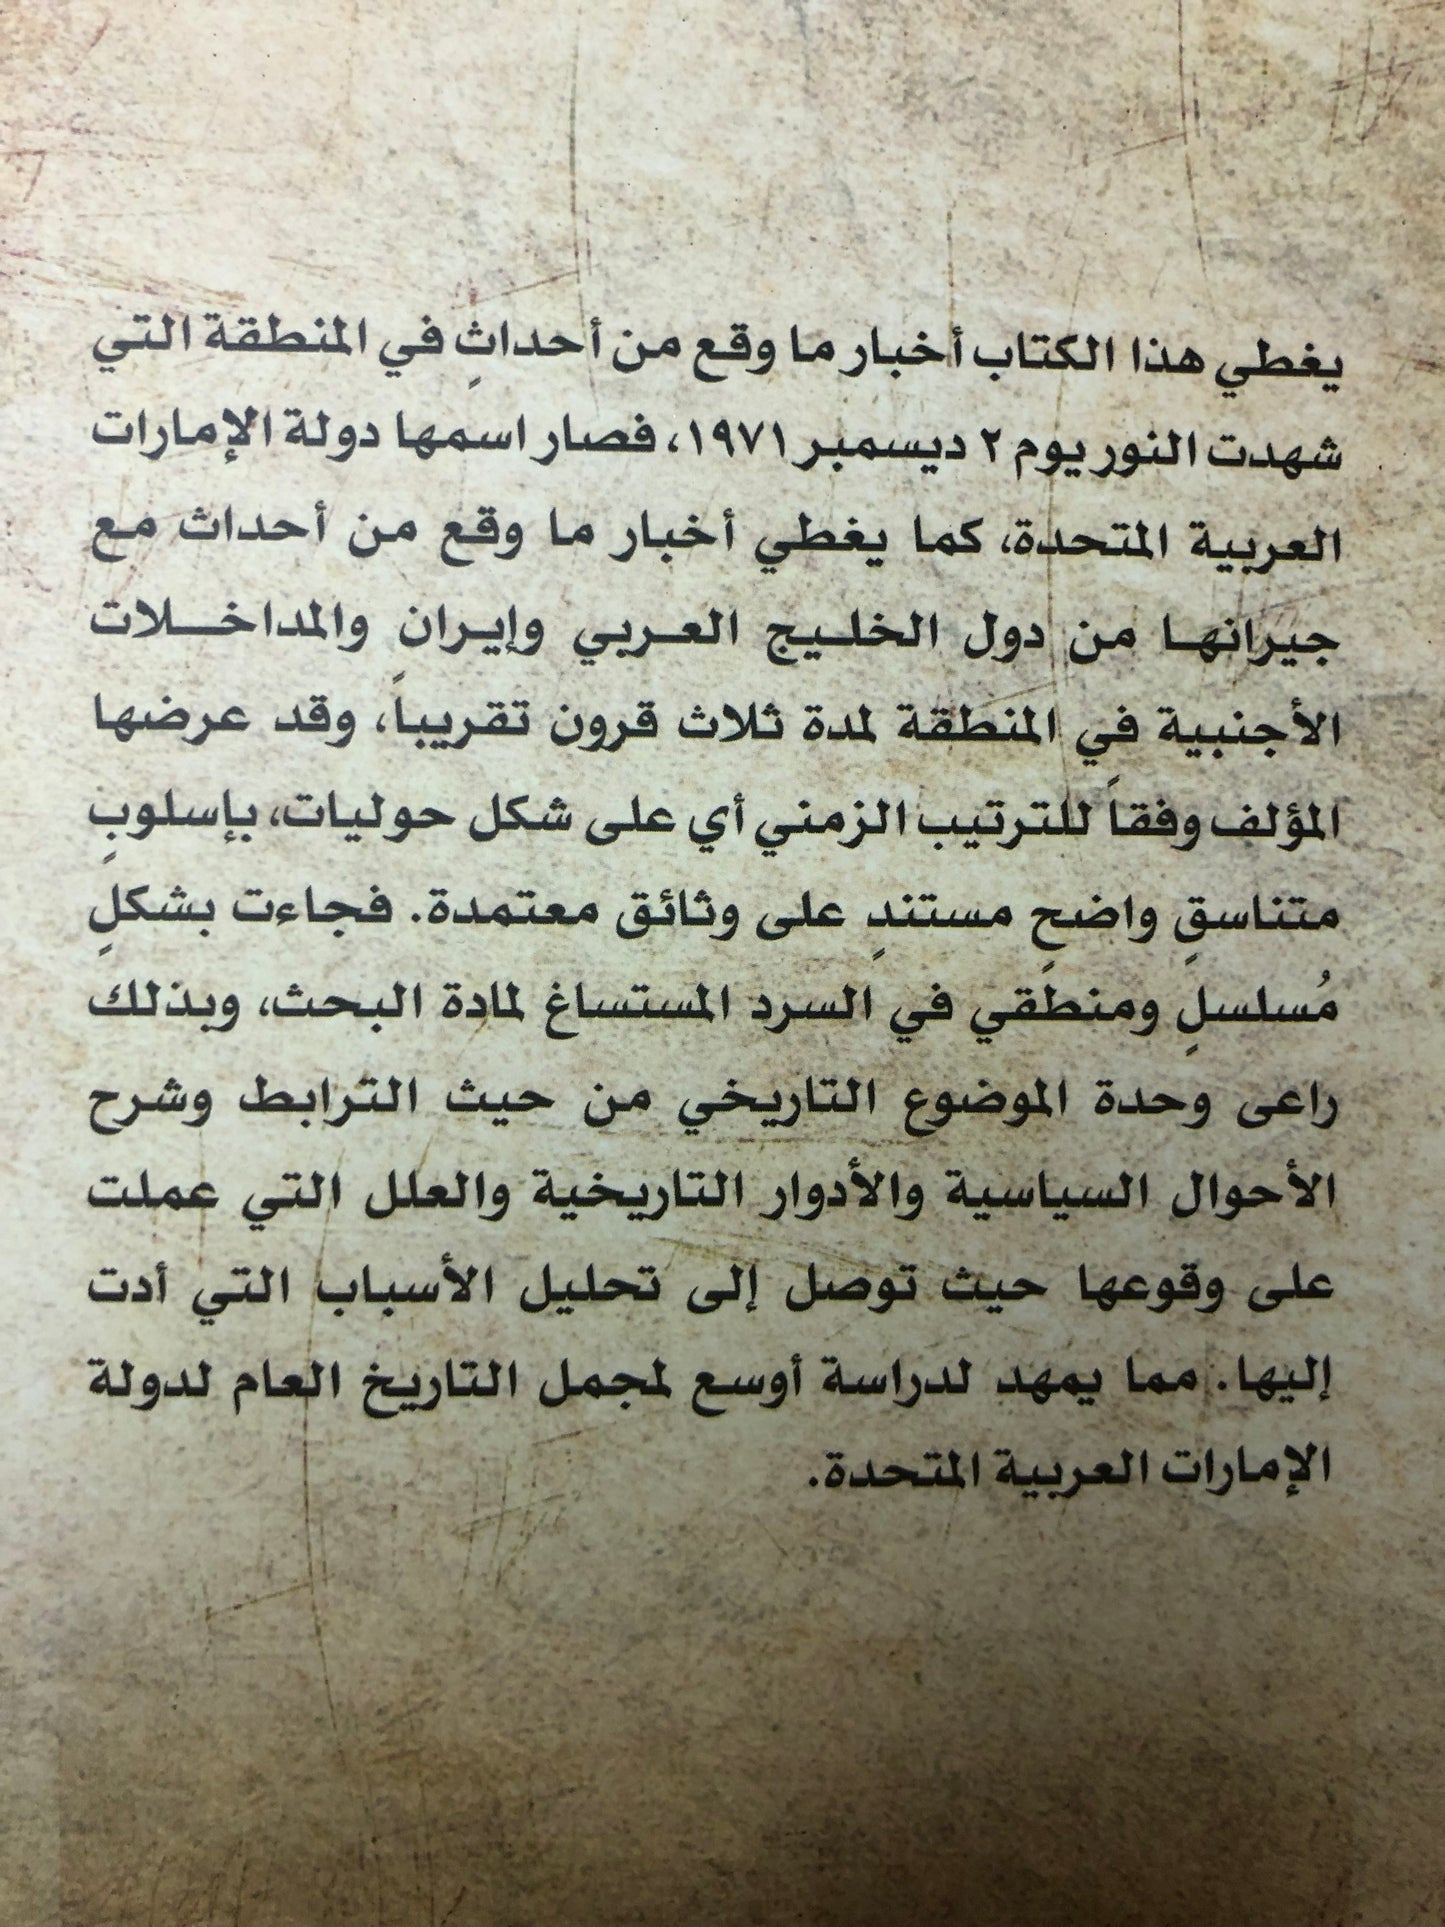 يغطي هذا الكتاب أخبار ما وقع من أحداثٍ في المنطقة التي
شهدت النور يوم ٢ ديسمبر ١٩٧١، فصار اسمها دولة الإمارات
العربية المتحدة، كما يغطي أخبار ما وقع من أحداث مع
جيرانها من دول الخليج العربي وإيران والمداخلات
الأجنبية في المنطقة لمدة ثلاث قرون تقريباً، وقد عرضها
المؤلف وفقاً للترتيب الزمني أي على شكل حوليات، بإسلوبٍ
متناسقٍ واضحٍ مستندٍ على وثائق معتمدة. فجاءت بشكلٍ
مُسلسلٍ ومنطقي في السرد المستساغ لمادة البحث، وبذلك
راعى وحدة الموضوع التاريخي من حيث الترابط وشرح
الأحوال السياسية والأدوار التاريخية والعلل التي عملت
على وقوعها حيث توصل إلى تحليل الأسباب التي أدت
إليها. مما يمهد لدراسة أوسع لمجمل التاريخ العام لدولة
الإمارات العربية المتحدة.